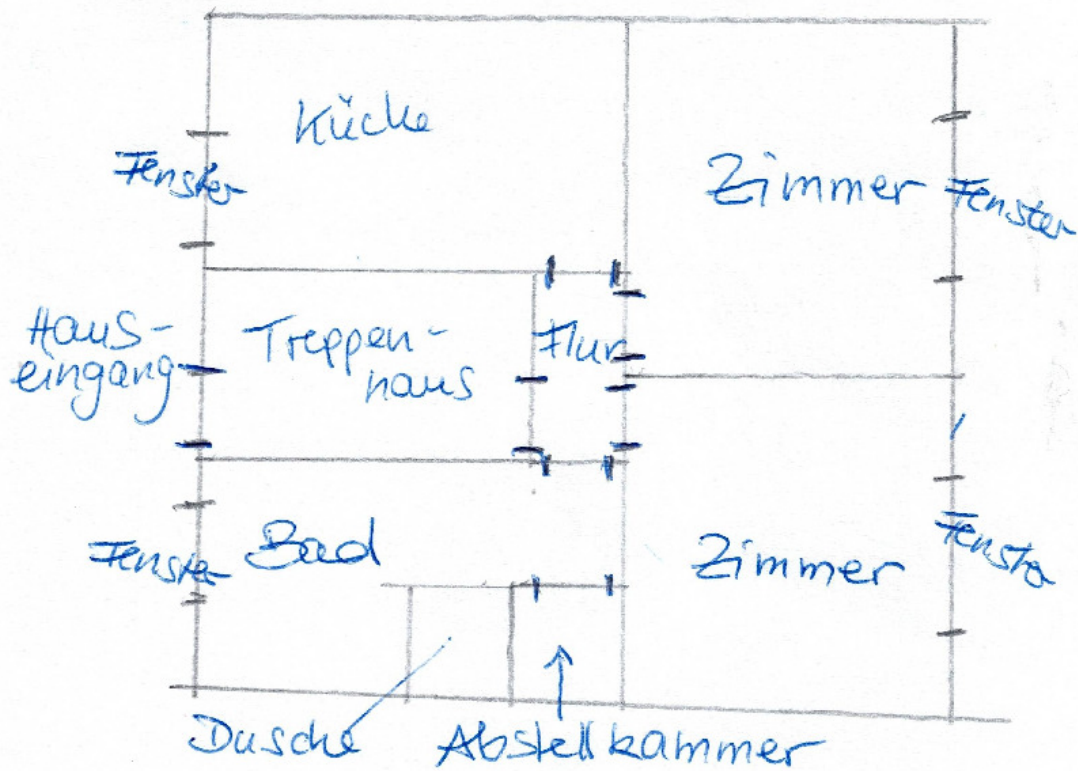 Küche
Zimmer
Fenster
Fenster
Haus-
eingang
Treppen-
haus
Flur
Fenster
Bad
Zimmer
Fenster
Dusche
Abstellkammer